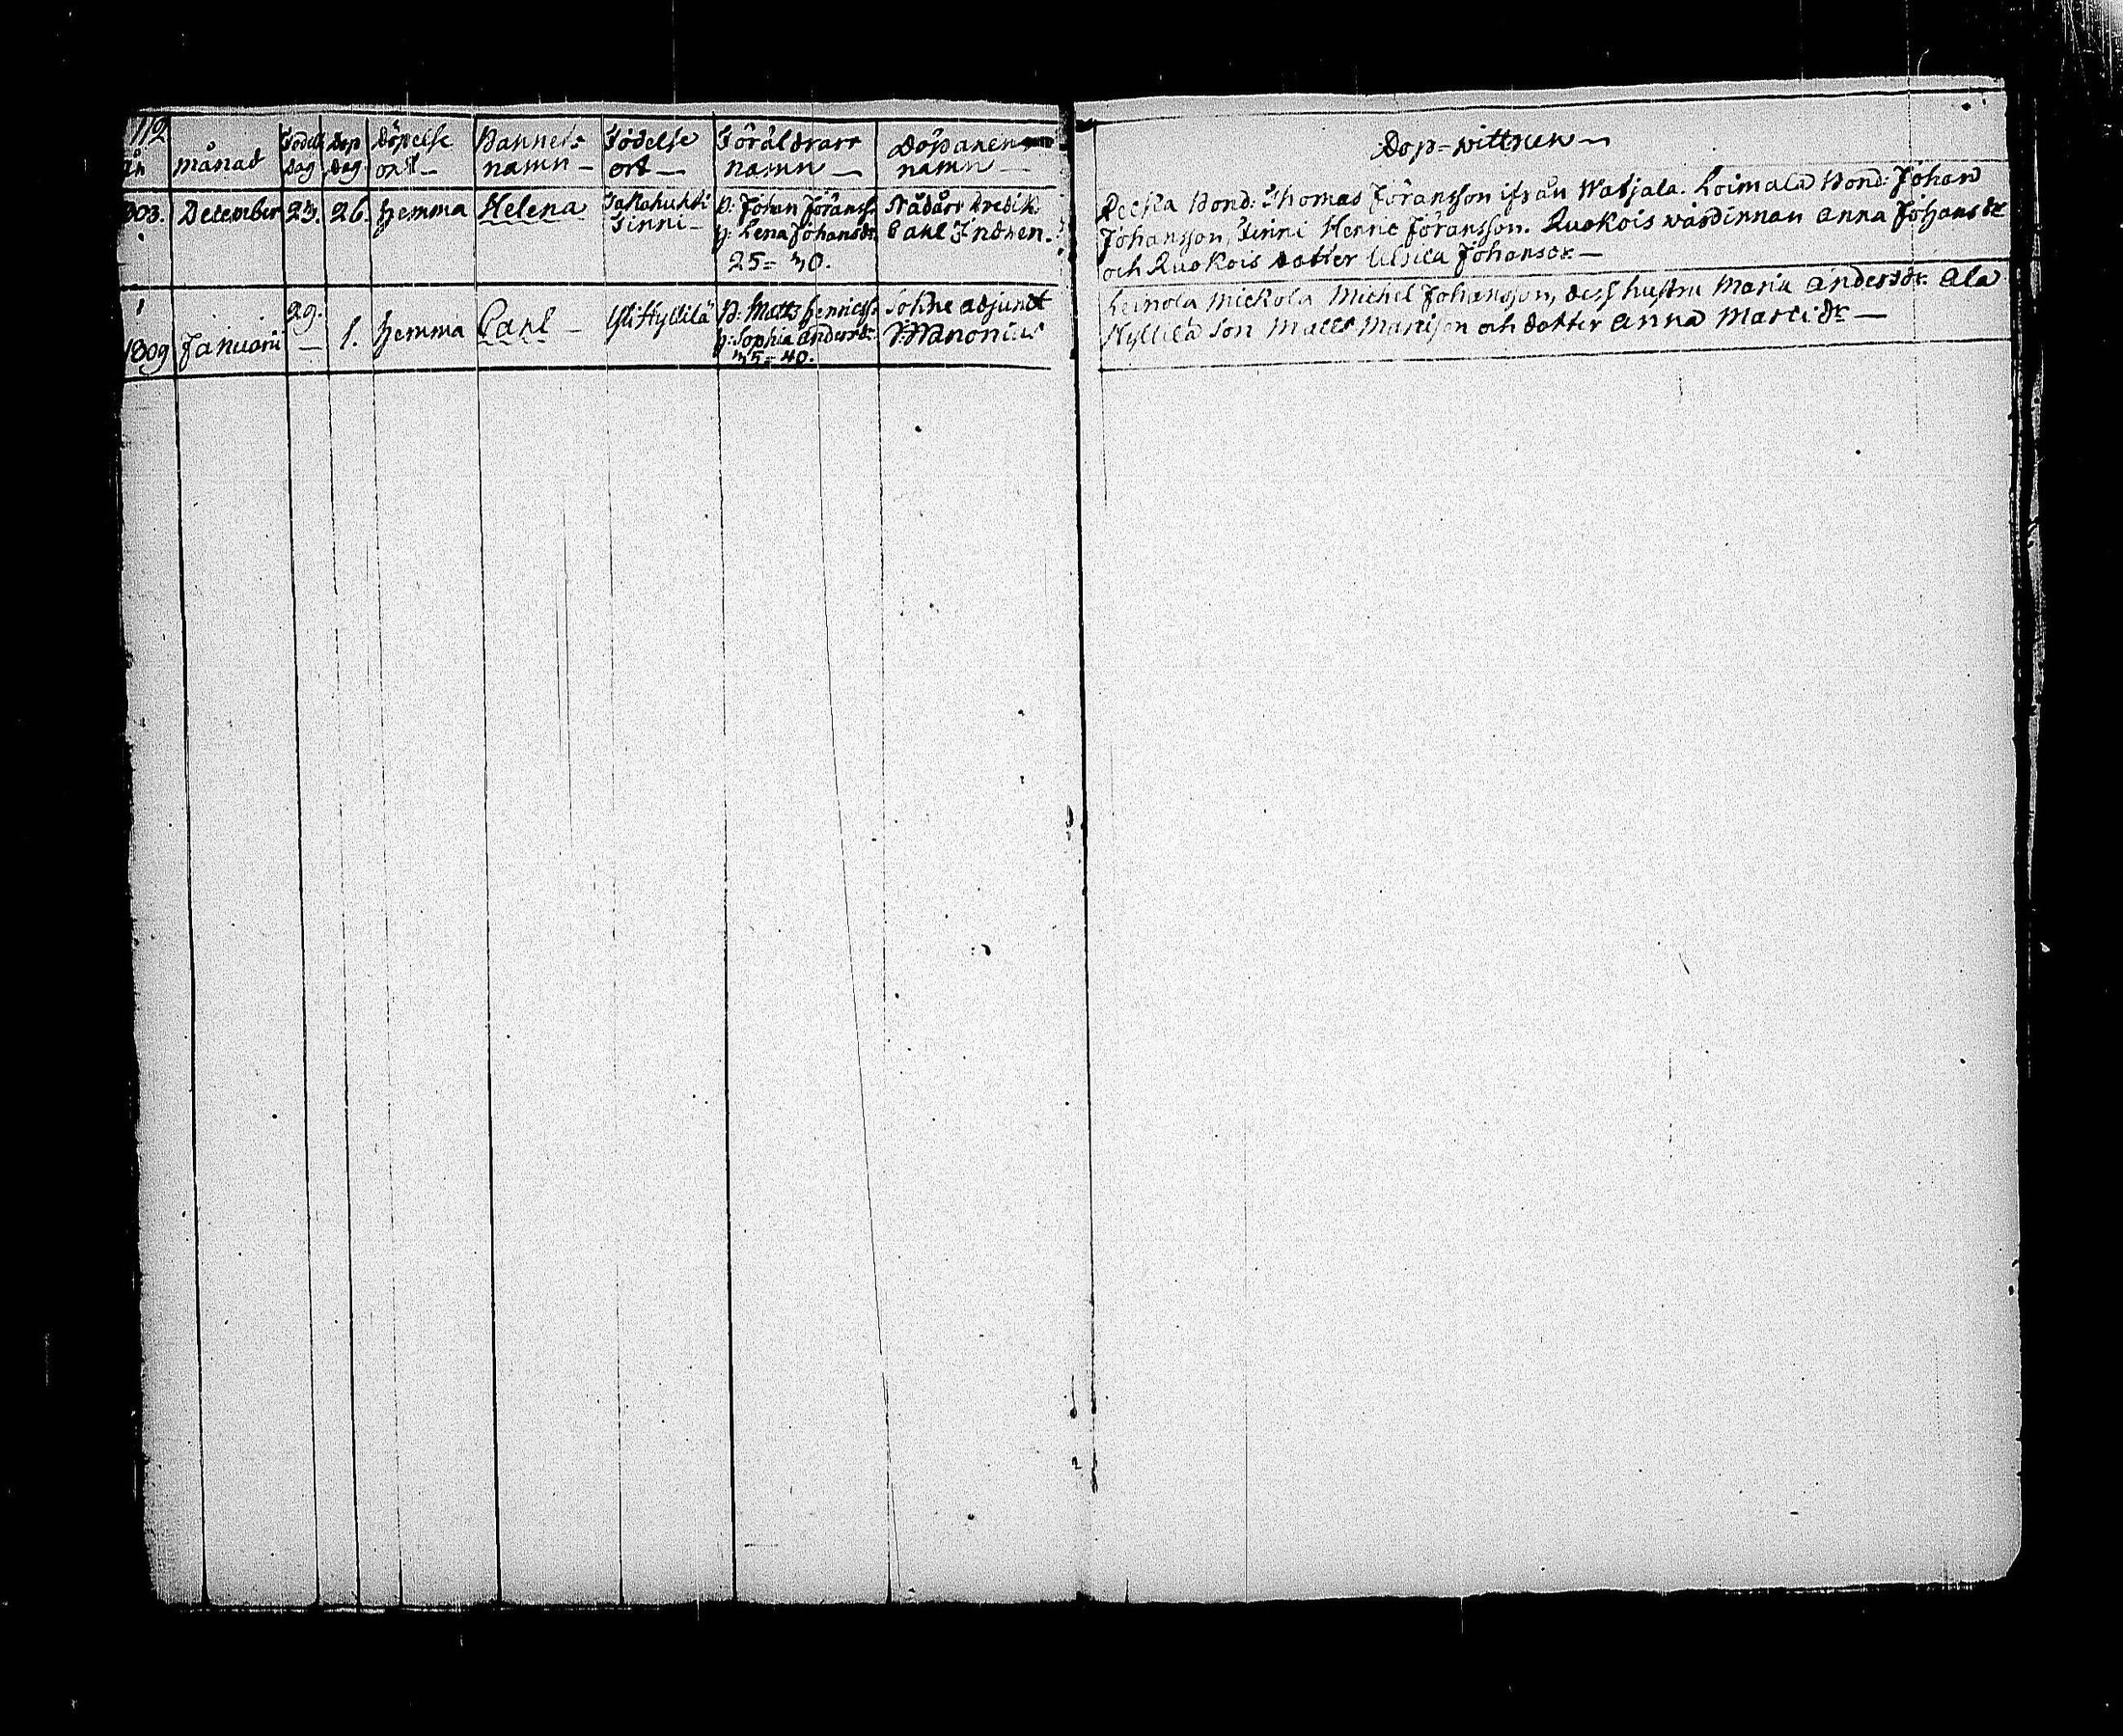 112
år månad Födelse dag Dop dag Döpelse ort Barnets namn Födelse ort Föräldrars namn Döparens namn
808. December 23. 26. hemma Helena Takahuhti Finni
F: Johan Jöranss.
h: Lena Johansdr.
25 = 30.
Nådårs Predik.
Carl Indren.
1809 Januarii 29. 1. hemma Carl YliHyllilä
F: Matts Henricss.
h: Sophia Andersdr.
35 = 40.
Sokne adjunct
Manonius
Dop-wittnen
Bond: Thomas Jöransson ifrån Watjala. Loimala Bond: Johan
Johansson, Finni Henric Jöransson. Ruokois wärdinnan Anna Johansdr
och Ruokois dotter Ulrica Johansdr.
Leinola Mickola Michel Johansson, dess hustru Maria Andersdr. Ala
Hyllilä Son Matts Mattsson och dotter Anna Mattsdr